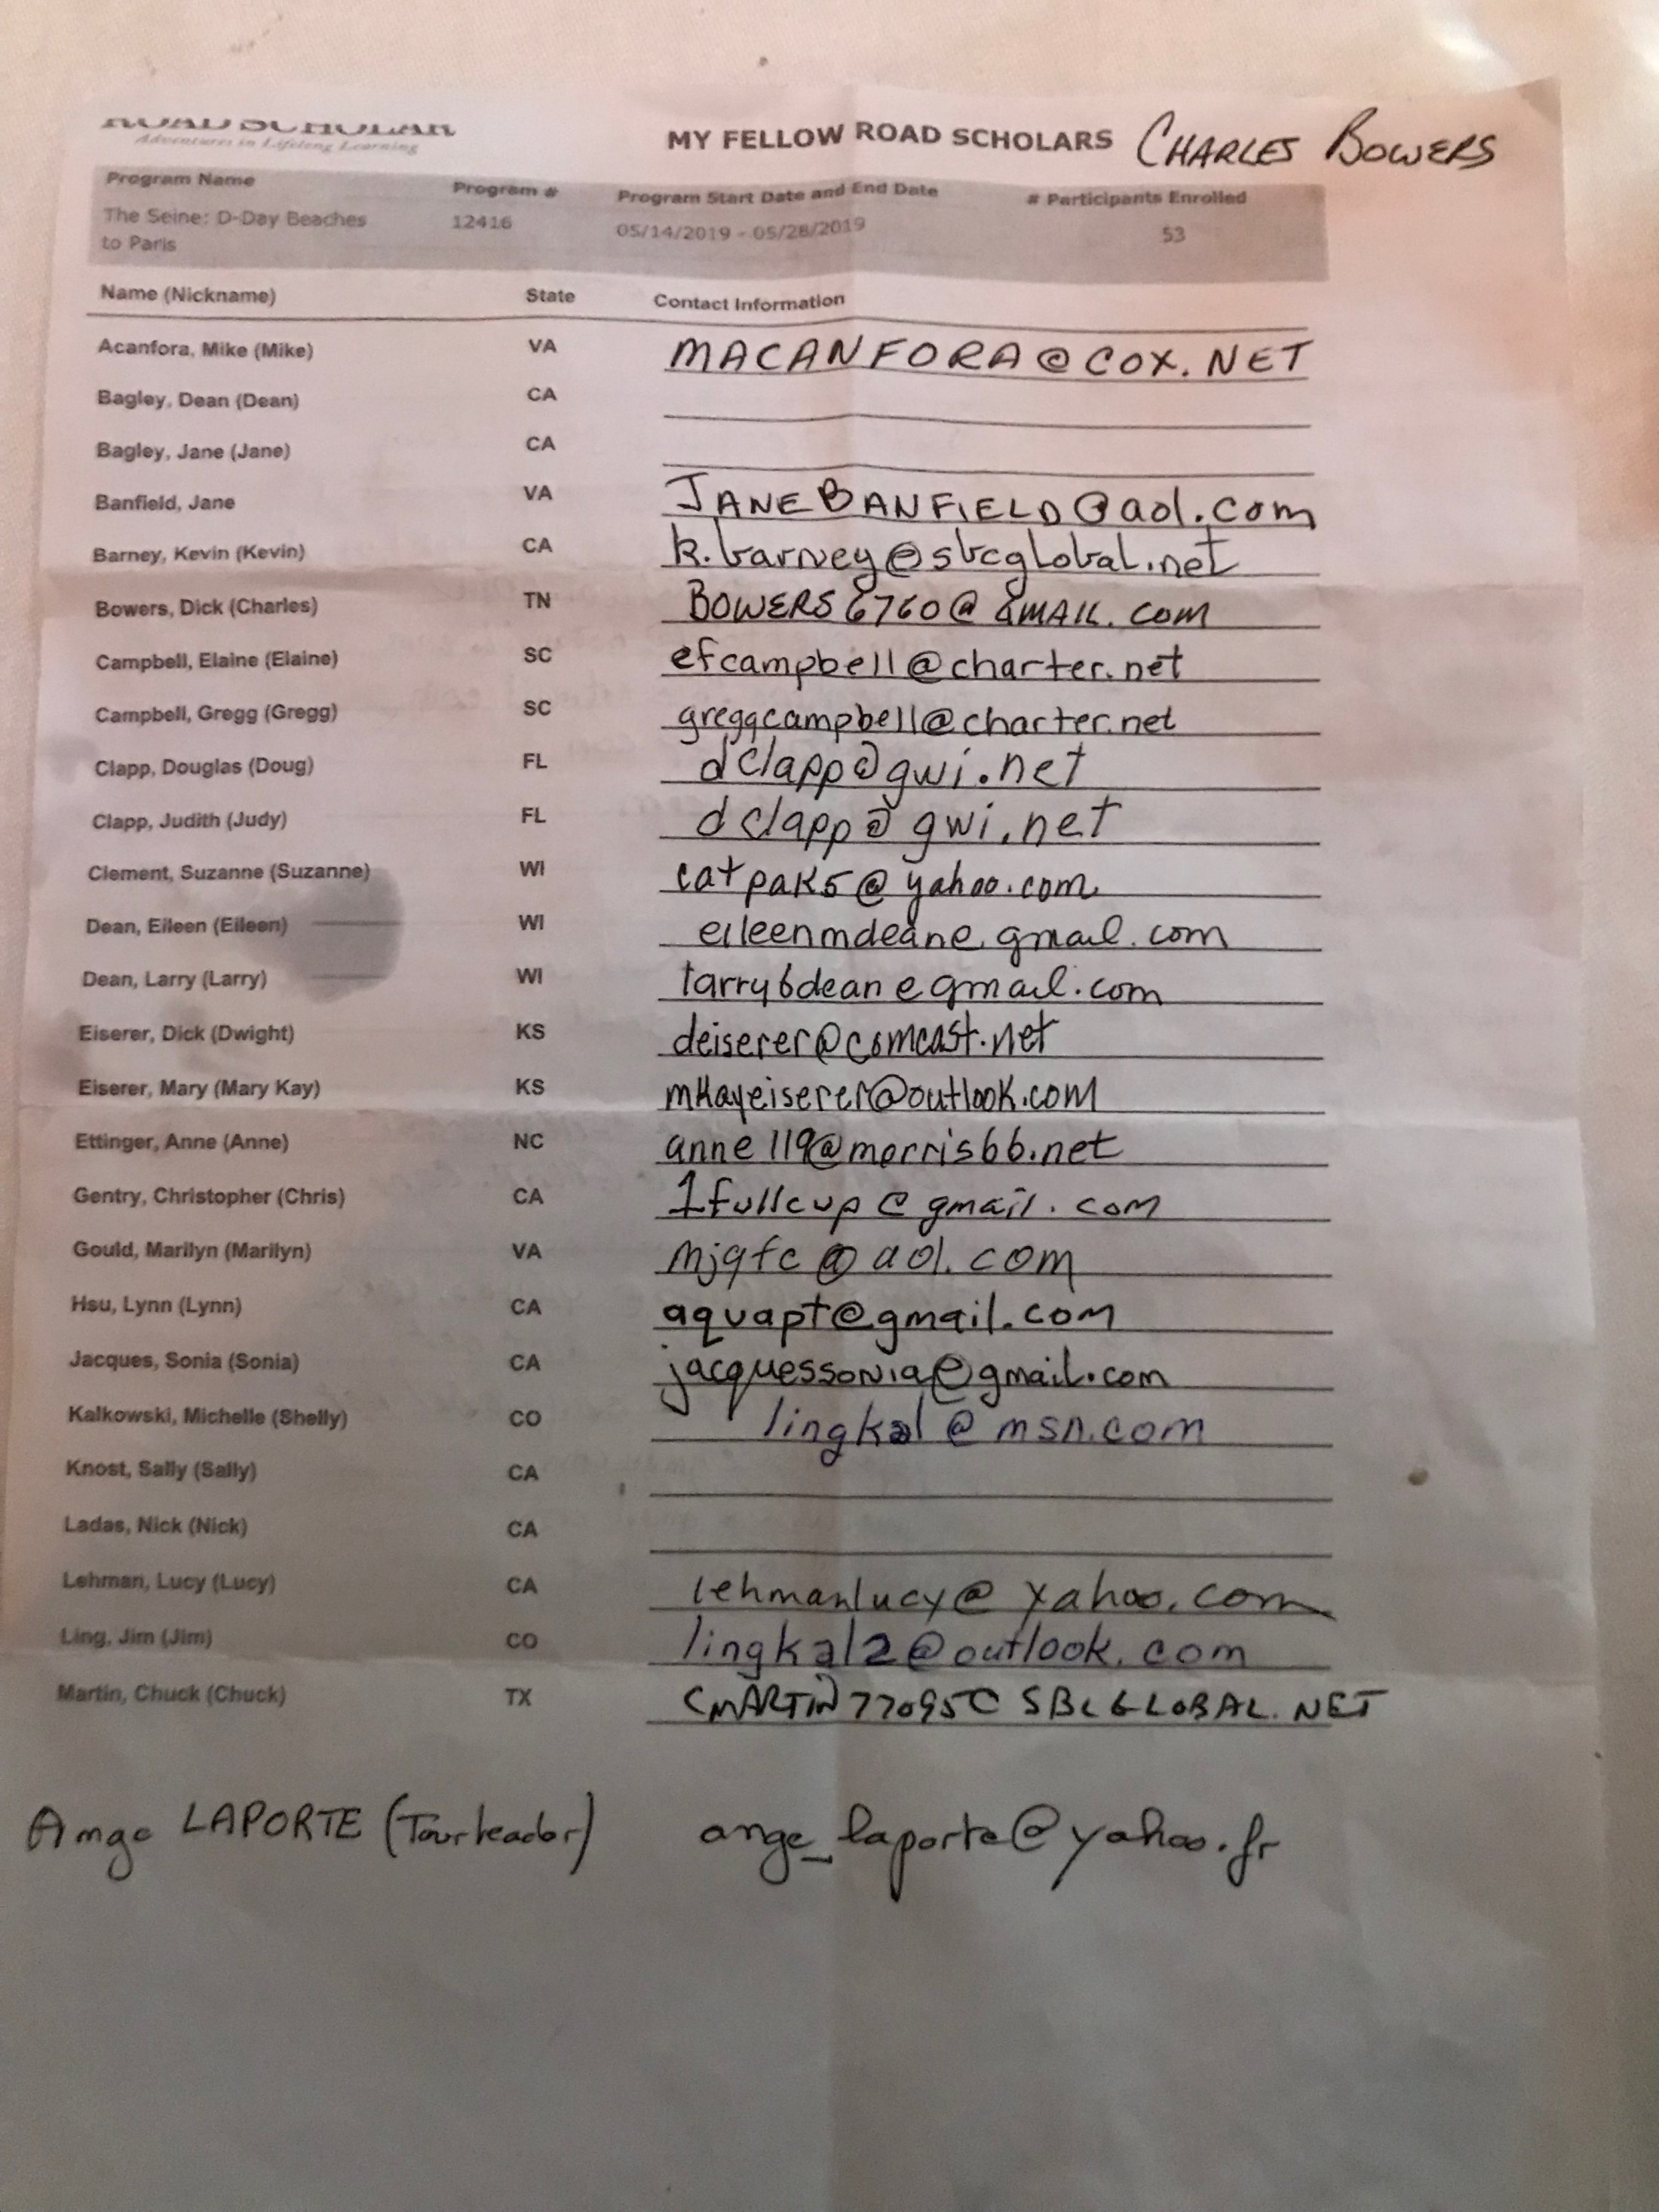 ROAD SCHOLAR
Adventures in Lifelong Learning
MY FELLOW ROAD SCHOLARS CHARLES BOWERS
Program Name Program # Program Start Date and End Date # Participants Enrolled
The Seine: D-Day Beaches 12416 05/14/2019 - 05/28/2019 53
to Paris
Name (Nickname) State Contact Information
Acanfora, Mike (Mike) VA MACANFORA@COX.NET
Bagley, Dean (Dean) CA
Bagley, Jane (Jane) CA
Banfield, Jane VA JANEBANFIELD@aol.com
Barney, Kevin (Kevin) CA k.barney@sbcglobal.net
Bowers, Dick (Charles) TN BOWERS6760@GMAIL.COM
Campbell, Elaine (Elaine) SC efcampbell@charter.net
Campbell, Gregg (Gregg) SC greggcampbell@charter.net
Clapp, Douglas (Doug) FL dclapp@gwi.net
Clapp, Judith (Judy) FL dclapp@gwi.net
Clement, Suzanne (Suzanne) WI catpak5@yahoo.com
Dean, Eileen (Eileen) WI eileenmdean@gmail.com
Dean, Larry (Larry) WI larry6dean@gmail.com
Eiserer, Dick (Dwight) KS deiserer@comcast.net
Eiserer, Mary (Mary Kay) KS mkayeiserer@outlook.com
Ettinger, Anne (Anne) NC anne119@morrisbb.net
Gentry, Christopher (Chris) CA 1fullcup@gmail.com
Gould, Marilyn (Marilyn) VA
Hsu, Lynn (Lynn) CA aquapt@gmail.com
Jacques, Sonia (Sonia) CA jacquessonia@gmail.com
Kalkowski, Michelle (Shelly) CO lingkal@msn.com
Knost, Sally (Sally) CA
Ladas, Nick (Nick) CA
Lehman, Lucy (Lucy) CA lehmanlucy@yahoo.com
Ling, Jim (Jim) CO lingkal2@outlook.com
Martin, Chuck (Chuck) TX CMARTIN77095@SBCGLOBAL.NET
Ange LAPORTE (Tour leader) ange_laporte@yahoo.fr